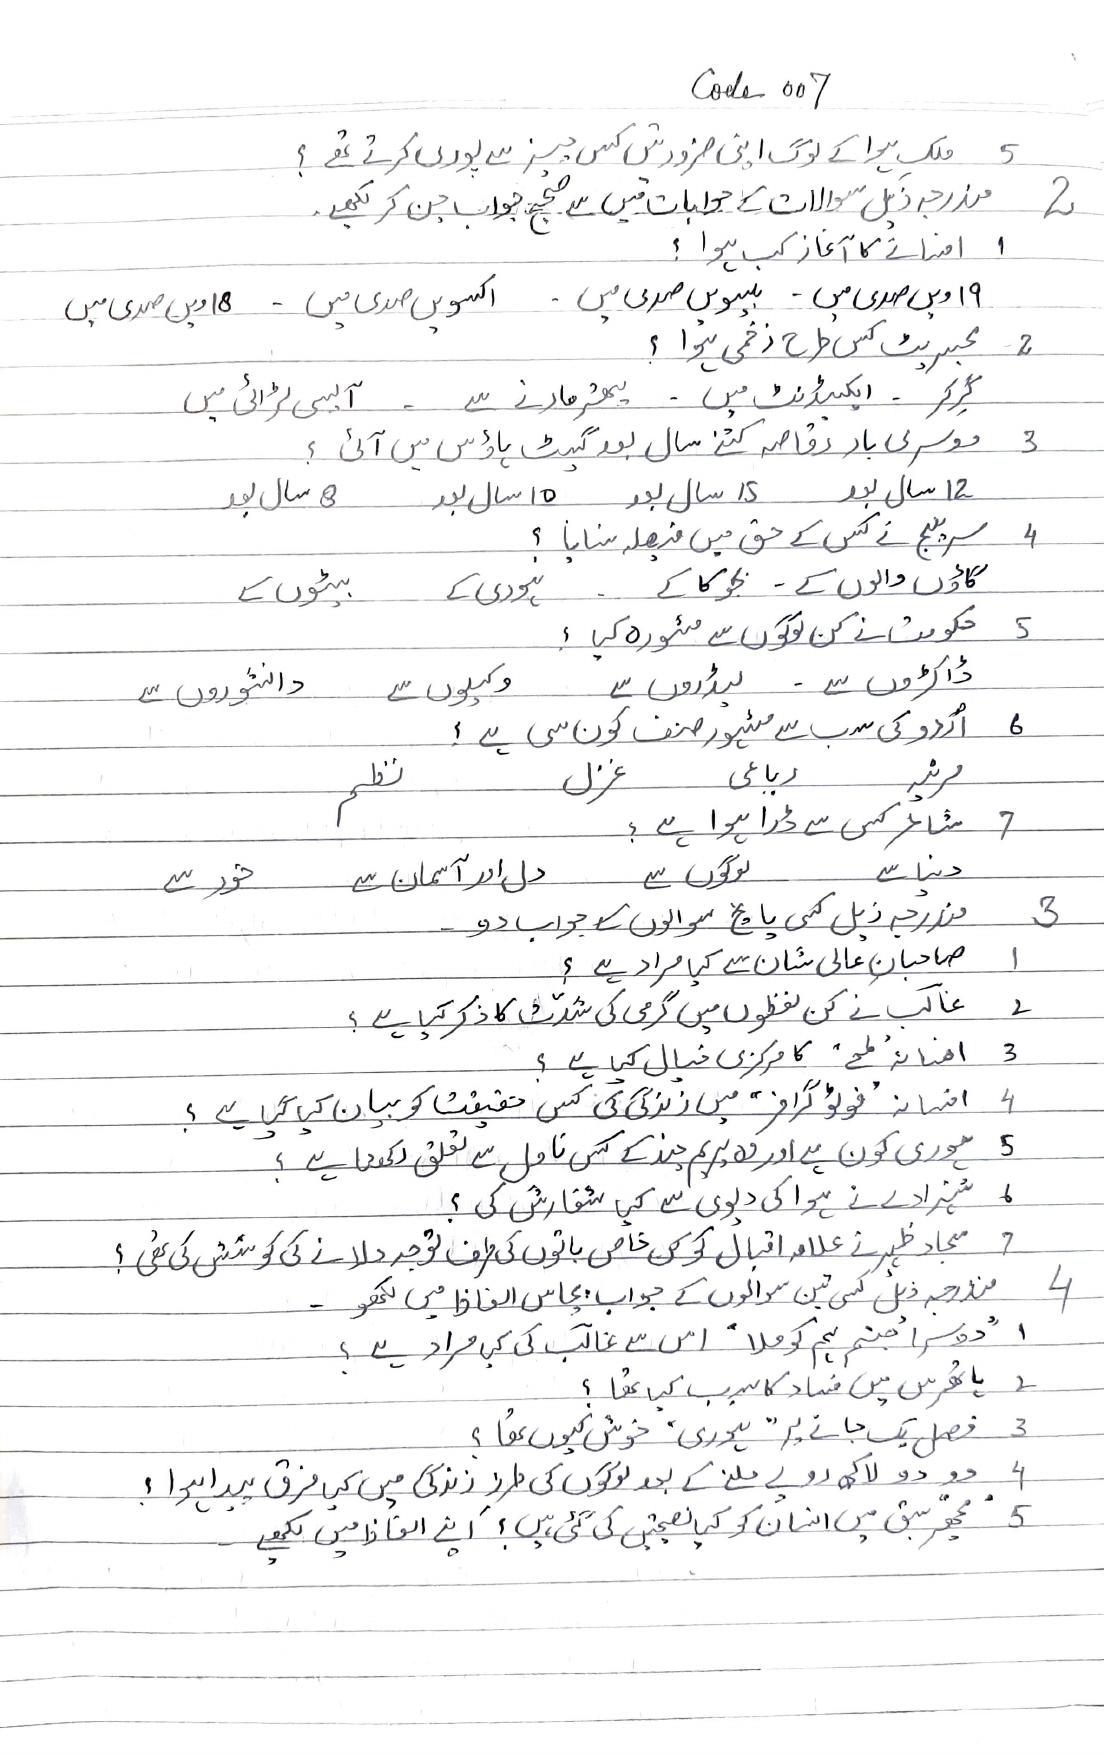 Code 007
5 ملک ہوا کے لوگ اپنی ضرورتیں کس چیز سے پوری کرتے تھے ؟
2 مندرجہ ذیل سوالات کے جوابات میں سے صحیح جواب چن کر لکھیے۔
1 افسانے کا آغاز کب ہوا ؟
19 ویں صدی میں - بیسویں صدی میں - اکسویں صدی میں - 18 ویں صدی میں
2 کس طرح زخمی ہوا ؟
گِرکر - ایکسیڈنٹ میں - پتھر مارنے سے - آپسی لڑائی میں
3 دوسری بار رقاصہ کتنے سال بعد گیسٹ ہاؤس میں آئی ؟
12 سال بعد 15 سال بعد 10 سال بعد 8 سال بعد
4 سرپنچ نے کس کے حق میں فیصلہ سنایا ؟
گاؤں والوں کے - بجوکا کے - ہوری کے بیٹوں کے
5 حکومت نے کن لوگوں سے مشورہ کیا ؟
ڈاکڑوں سے - لیڈروں سے وکیلوں سے دانشوروں سے
6 اُردو کی سب سے مشہور صنف کون سی ہے ؟
مرثیہ رباعی غزل نظم
7 شاعر کس سے ڈرا ہوا ہے ؟
دنیا سے لوگوں سے دل اور آسمان سے خود سے
3 مندرجہ ذیل کسی پانچ سوالوں کے جواب دو -
1 صاحبانِ عالی شان سے کیا مراد ہے ؟
2 غالب نے کن لفظوں میں گرمی کی شدّت کا ذکر کیا ہے ؟
3 افسانہ "لمحے" کا مرکزی خیال کیا ہے ؟
4 افسانہ "فوٹو گرافر" میں زندگی کی کس حقیقت کو بیان کیا گیا ہے ؟
5 ہوری کون ہے اور وہ پریم چند کے کس ناول سے تعلق رکھتا ہے ؟
6 شہزادے نے ہوا کی دیوی سے کیا سفارش کی ؟
7 سجاد ظہیر نے علامہ اقبال کو کن خاص باتوں کی طرف توجہ دلانے کی کوشش کی تھی ؟
4 مندرجہ ذیل کسی تین سوالوں کے جواب پچاس الفاظ میں لکھو -
1 "دوسرا جہنم ہم کو ملا" اس سے غالب کی کیا مراد ہے ؟
2 ہاتھرس میں فساد کا سبب کیا تھا ؟
3 فصل پک جانے پر "ہوری" خوش کیوں تھا ؟
4 دو دو لاکھ روپے ملنے کے بعد لوگوں کی طرز زندگی میں کیا فرق پیدا ہوا ؟
5 "مچھر" سبق میں انسان کو کیا نصیحتیں کی گئی ہیں ؟ اپنے الفاظ میں لکھیے -